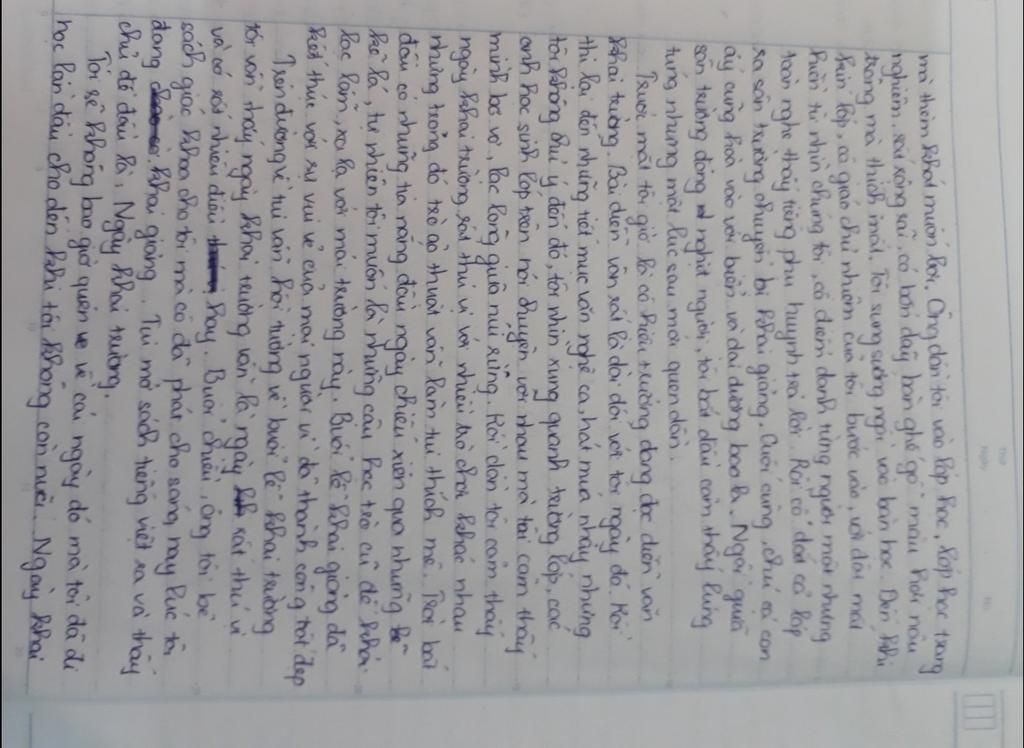 mà thèm khát muốn lôi. Ông dẫn tôi vào lớp học, lớp học trang
nghiêm, rất rộng rãi có bốn dãy bàn ghế gỗ màu hơi nâu
trông mà thích mắt. Tôi sung sướng ngồi vào bàn học. Đến khi
hửn lớp, cô giáo chủ nhiệm của tôi bước vào, với đôi mắt
hiền từ nhìn chúng tôi, cô điểm danh từng người một nhưng
toàn nghe thấy tiếng phụ huynh trả lời. Rồi cô dắt cả lớp
ra sân trường chuẩn bị khai giảng. Cuối cùng, chú cá con
ấy cũng hòa vào với biển và đại dương bao la. Ngồi giữa
sân trường đông nghịt người, tôi bắt đầu cảm thấy lúng
túng nhưng một lúc sau mới quen dần.
Trước mắt tôi giờ là cô hiệu trưởng dõng dạc diễn văn
khai trường. Bài diễn văn rất là dài đối với tôi ngày đó. Rồi
thì là đến những tiết mục văn nghệ ca, hát múa nhảy nhưng
tôi không chú ý đến đó, tôi nhìn xung quanh trường lớp, các
anh học sinh lớp trên nói chuyện với nhau mà tôi cảm thấy
mình bơ vơ, lạc lõng giữa núi rừng. Rồi dần tôi cảm thấy
ngày khai trường rất thú vị với nhiều trò chơi khác nhau
những tràng đó trò ảo thuật vẫn làm tui thích mê. Trời bắt
đầu có những tia nắng đầu ngày chiếu xiên qua những
kẽ lá, tự nhiên tôi muốn là những cậu học trò cũ để khỏi
lạc lõng, xa lạ với mái trường này. Buổi lễ khai giảng đã
kết thúc với sự vui vẻ của mọi người vì đã thành công tốt đẹp
Trên đường về tui vẫn hồi tưởng về buổi lễ khai trường
tôi vẫn thấy ngày khai trường vẫn là ngày rất thú vị
và có rất nhiều điều hay. Buổi chiều, ông tôi bọc
sách giáo khoa cho tôi mà cô đã phát cho sáng nay lúc tôi
đang khai giảng. Tui mở sách tiếng việt ra và thấy
chủ đề đầu là, Ngày khai trường.
Tôi sẽ không bao giờ quên về cái ngày đó mà tôi đã đi
học lần đầu cho đến khi tôi không còn nữa. Ngày khai